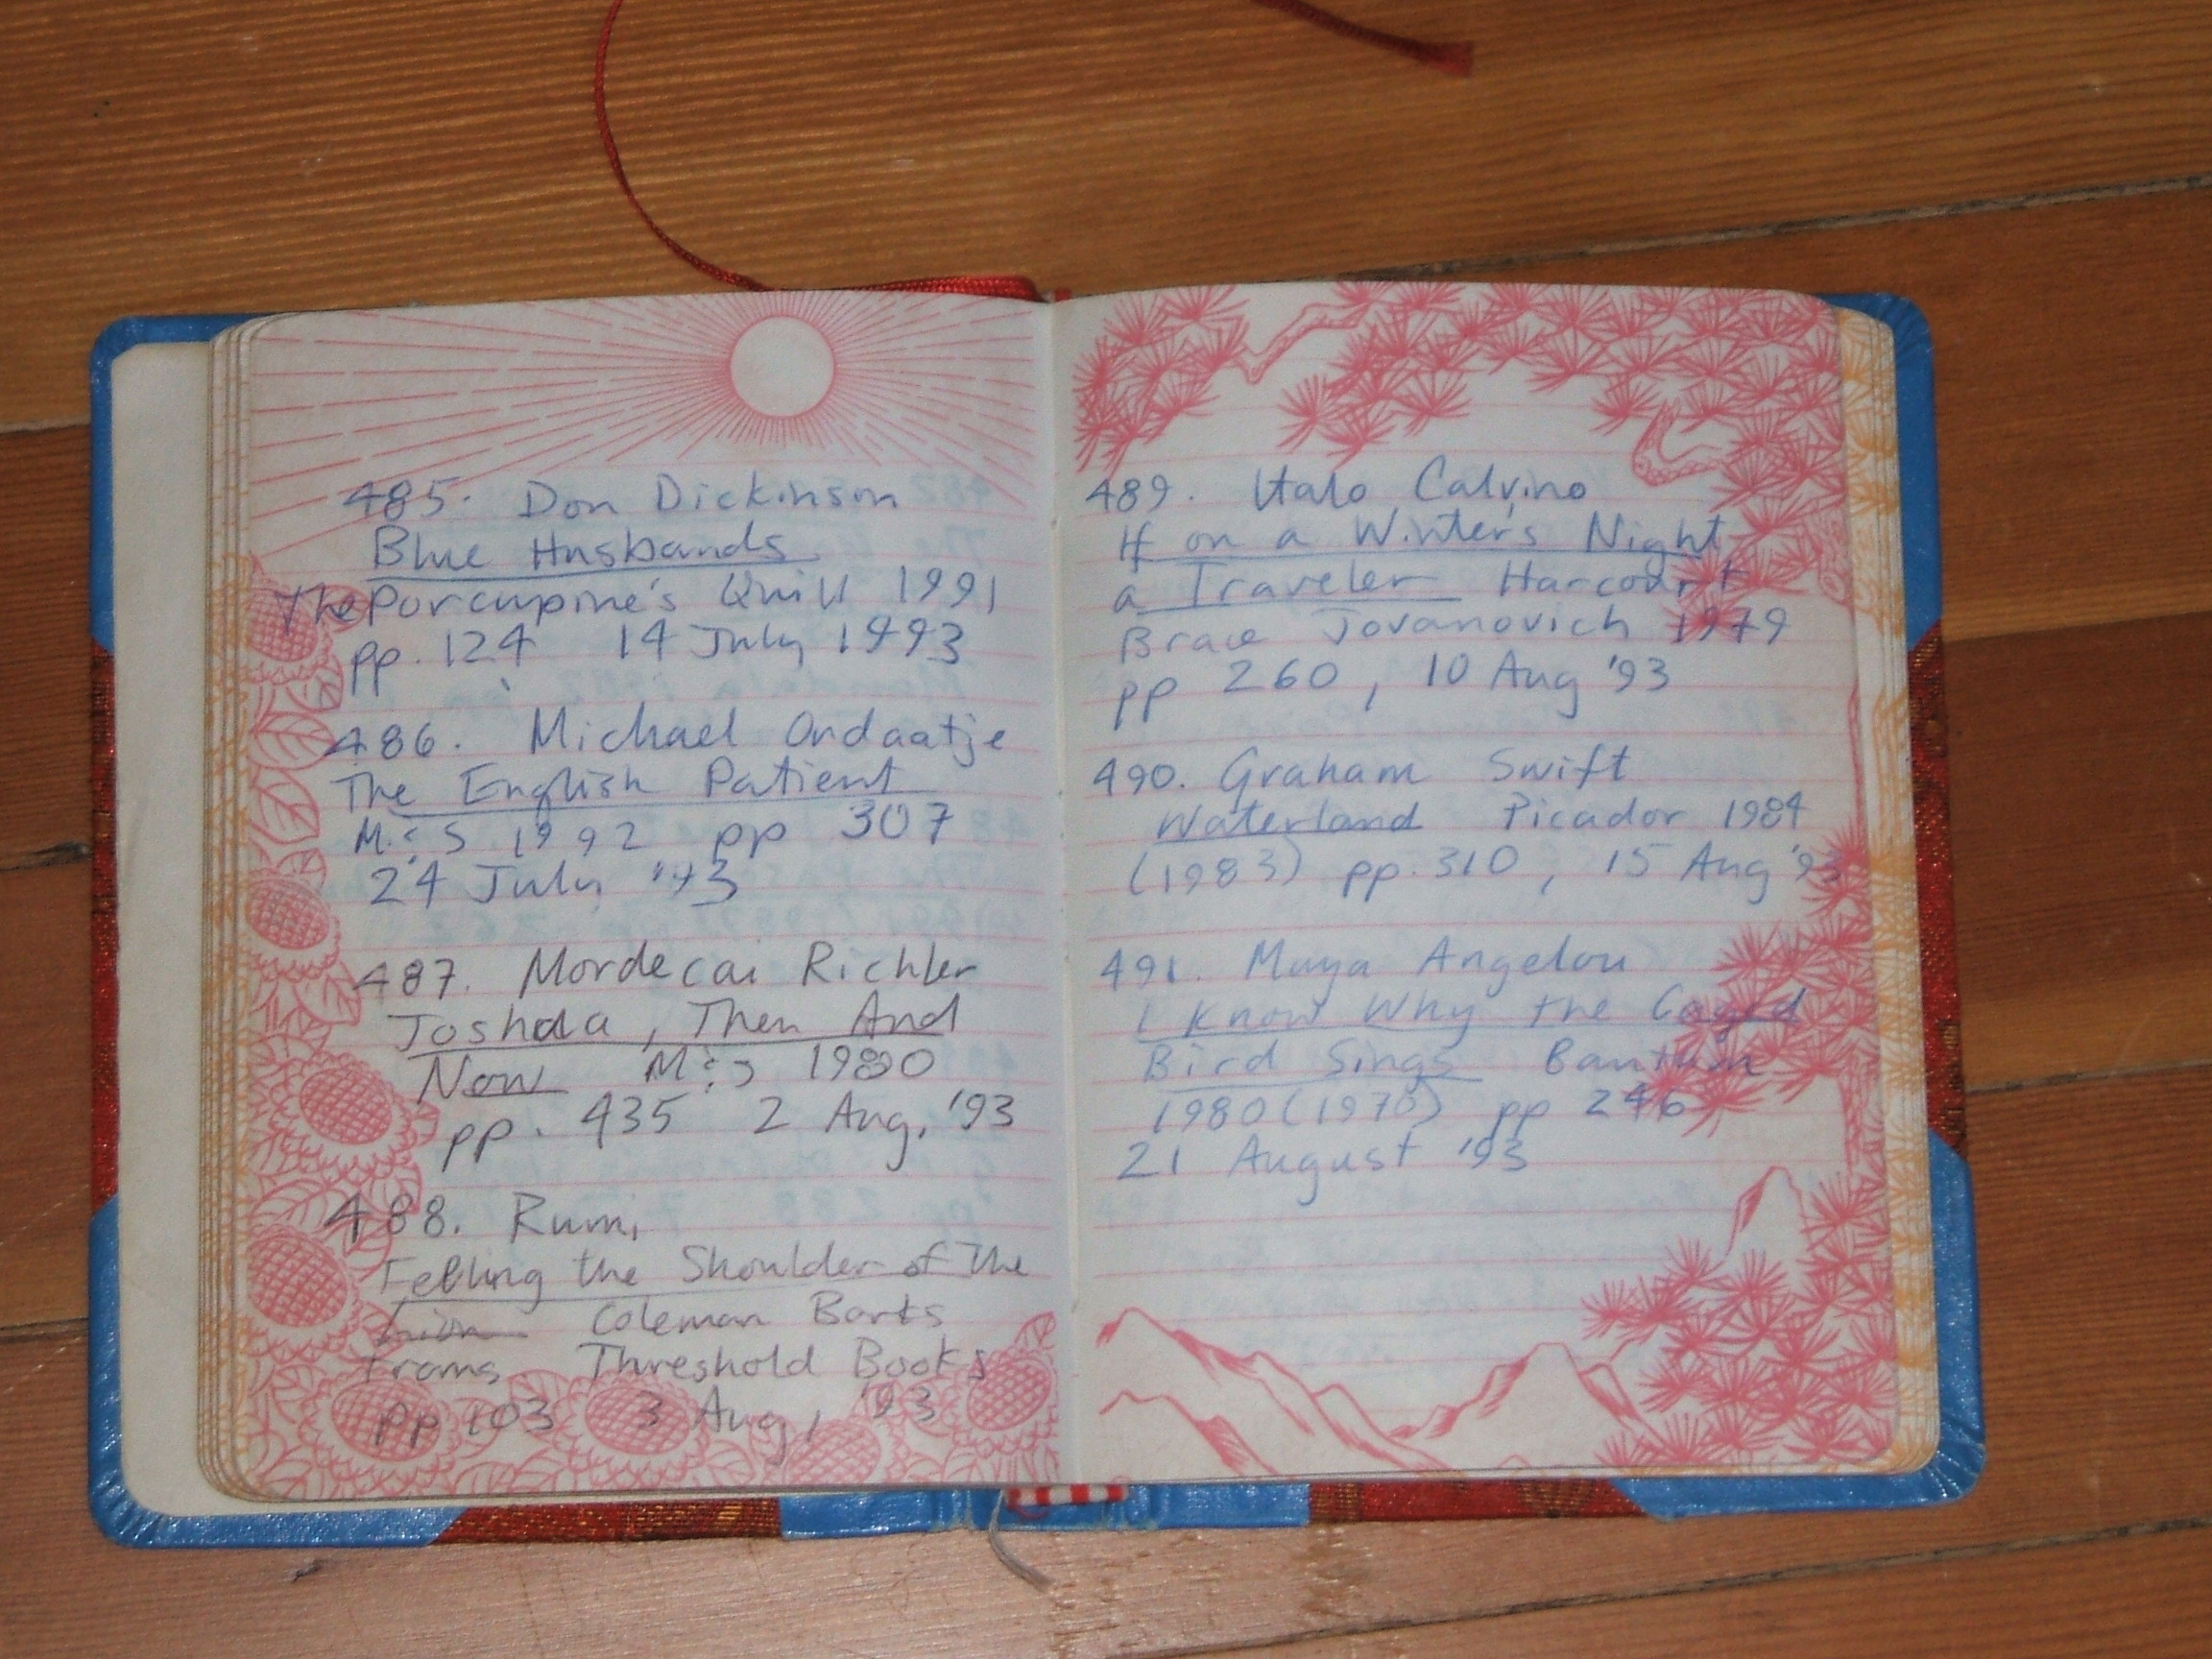 485. Don Dickinson
Blue Husbands
The Porcupine's Quill 1991
pp. 124 14 July 1993
486. Michael Ondaatje
The English Patient
M & S 1992 pp 307
24 July '93
487. Mordecai Richler
Joshua, Then And
Now M & S 1980
pp. 435 2 Aug, '93
488. Rumi
Feeling the Shoulder of The
Lion Coleman Barks
Trans Threshold Books
pp 103 3 Aug, '93
489. Italo Calvino
If on a Winter's Night
a Traveler Harcourt
Brace Jovanovich 1979
pp 260, 10 Aug '93
490. Graham Swift
Waterland Picador 1984
(1983) pp. 310, 15 Aug '93
491. Maya Angelou
I Know Why the Caged
Bird Sings Bantam
1980 (1970) pp 246
21 August '93